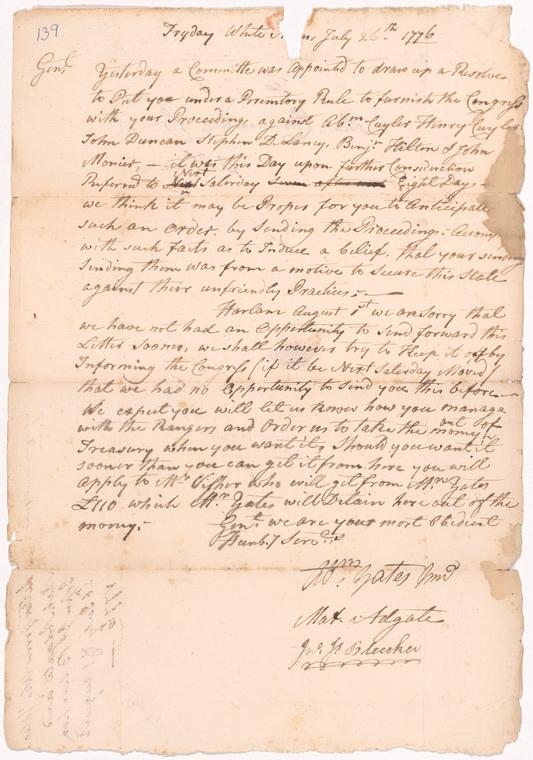 139.
Fryday White Plains, July 26th 1776
Genl.
Yesterday a Committe was appointed to draw up a Resolve
to Put you under a Peremtory Rule to furnish the Congress
with your Proceedings against Abm. Cuyler Henry Cuyler
John Duncan Stephen D. Lancy, Benjn. Hilton & John
Monier, – it was this Day upon further Consideration
Referred to Next Saterday Eight Days –
we think it may be Proper for you to Anticipate
such an order, by sending the Proceedings: Accomp
with such facts as to Induce a belief, that your
sending them was from a motive to Secure this State
against thier unfriendly Practices. —
Harlam August 1st we are Sorry that
we have not had an Opportunity to send forward this
Letter Sooner, we shall however try to Keep it off by
Informing the Congress (if it be Next Satesday Moved
that we had no Opportunity to send you this before —
We expect you will let us Know how you manage
with the Rangers and Order us to take the money out of
Treasury when you want it, Should you want it
sooner than you can get it from here you will
apply to Mr. Visher who will get from Mrs. Yates
£110 which Mr. Yates will Detain here out of the
money. –
Gent. we are your most Obedient
Humbl. Servts.
Abm. Yates Junr.
Mat. Adgate
Jno. Js. Bleecker